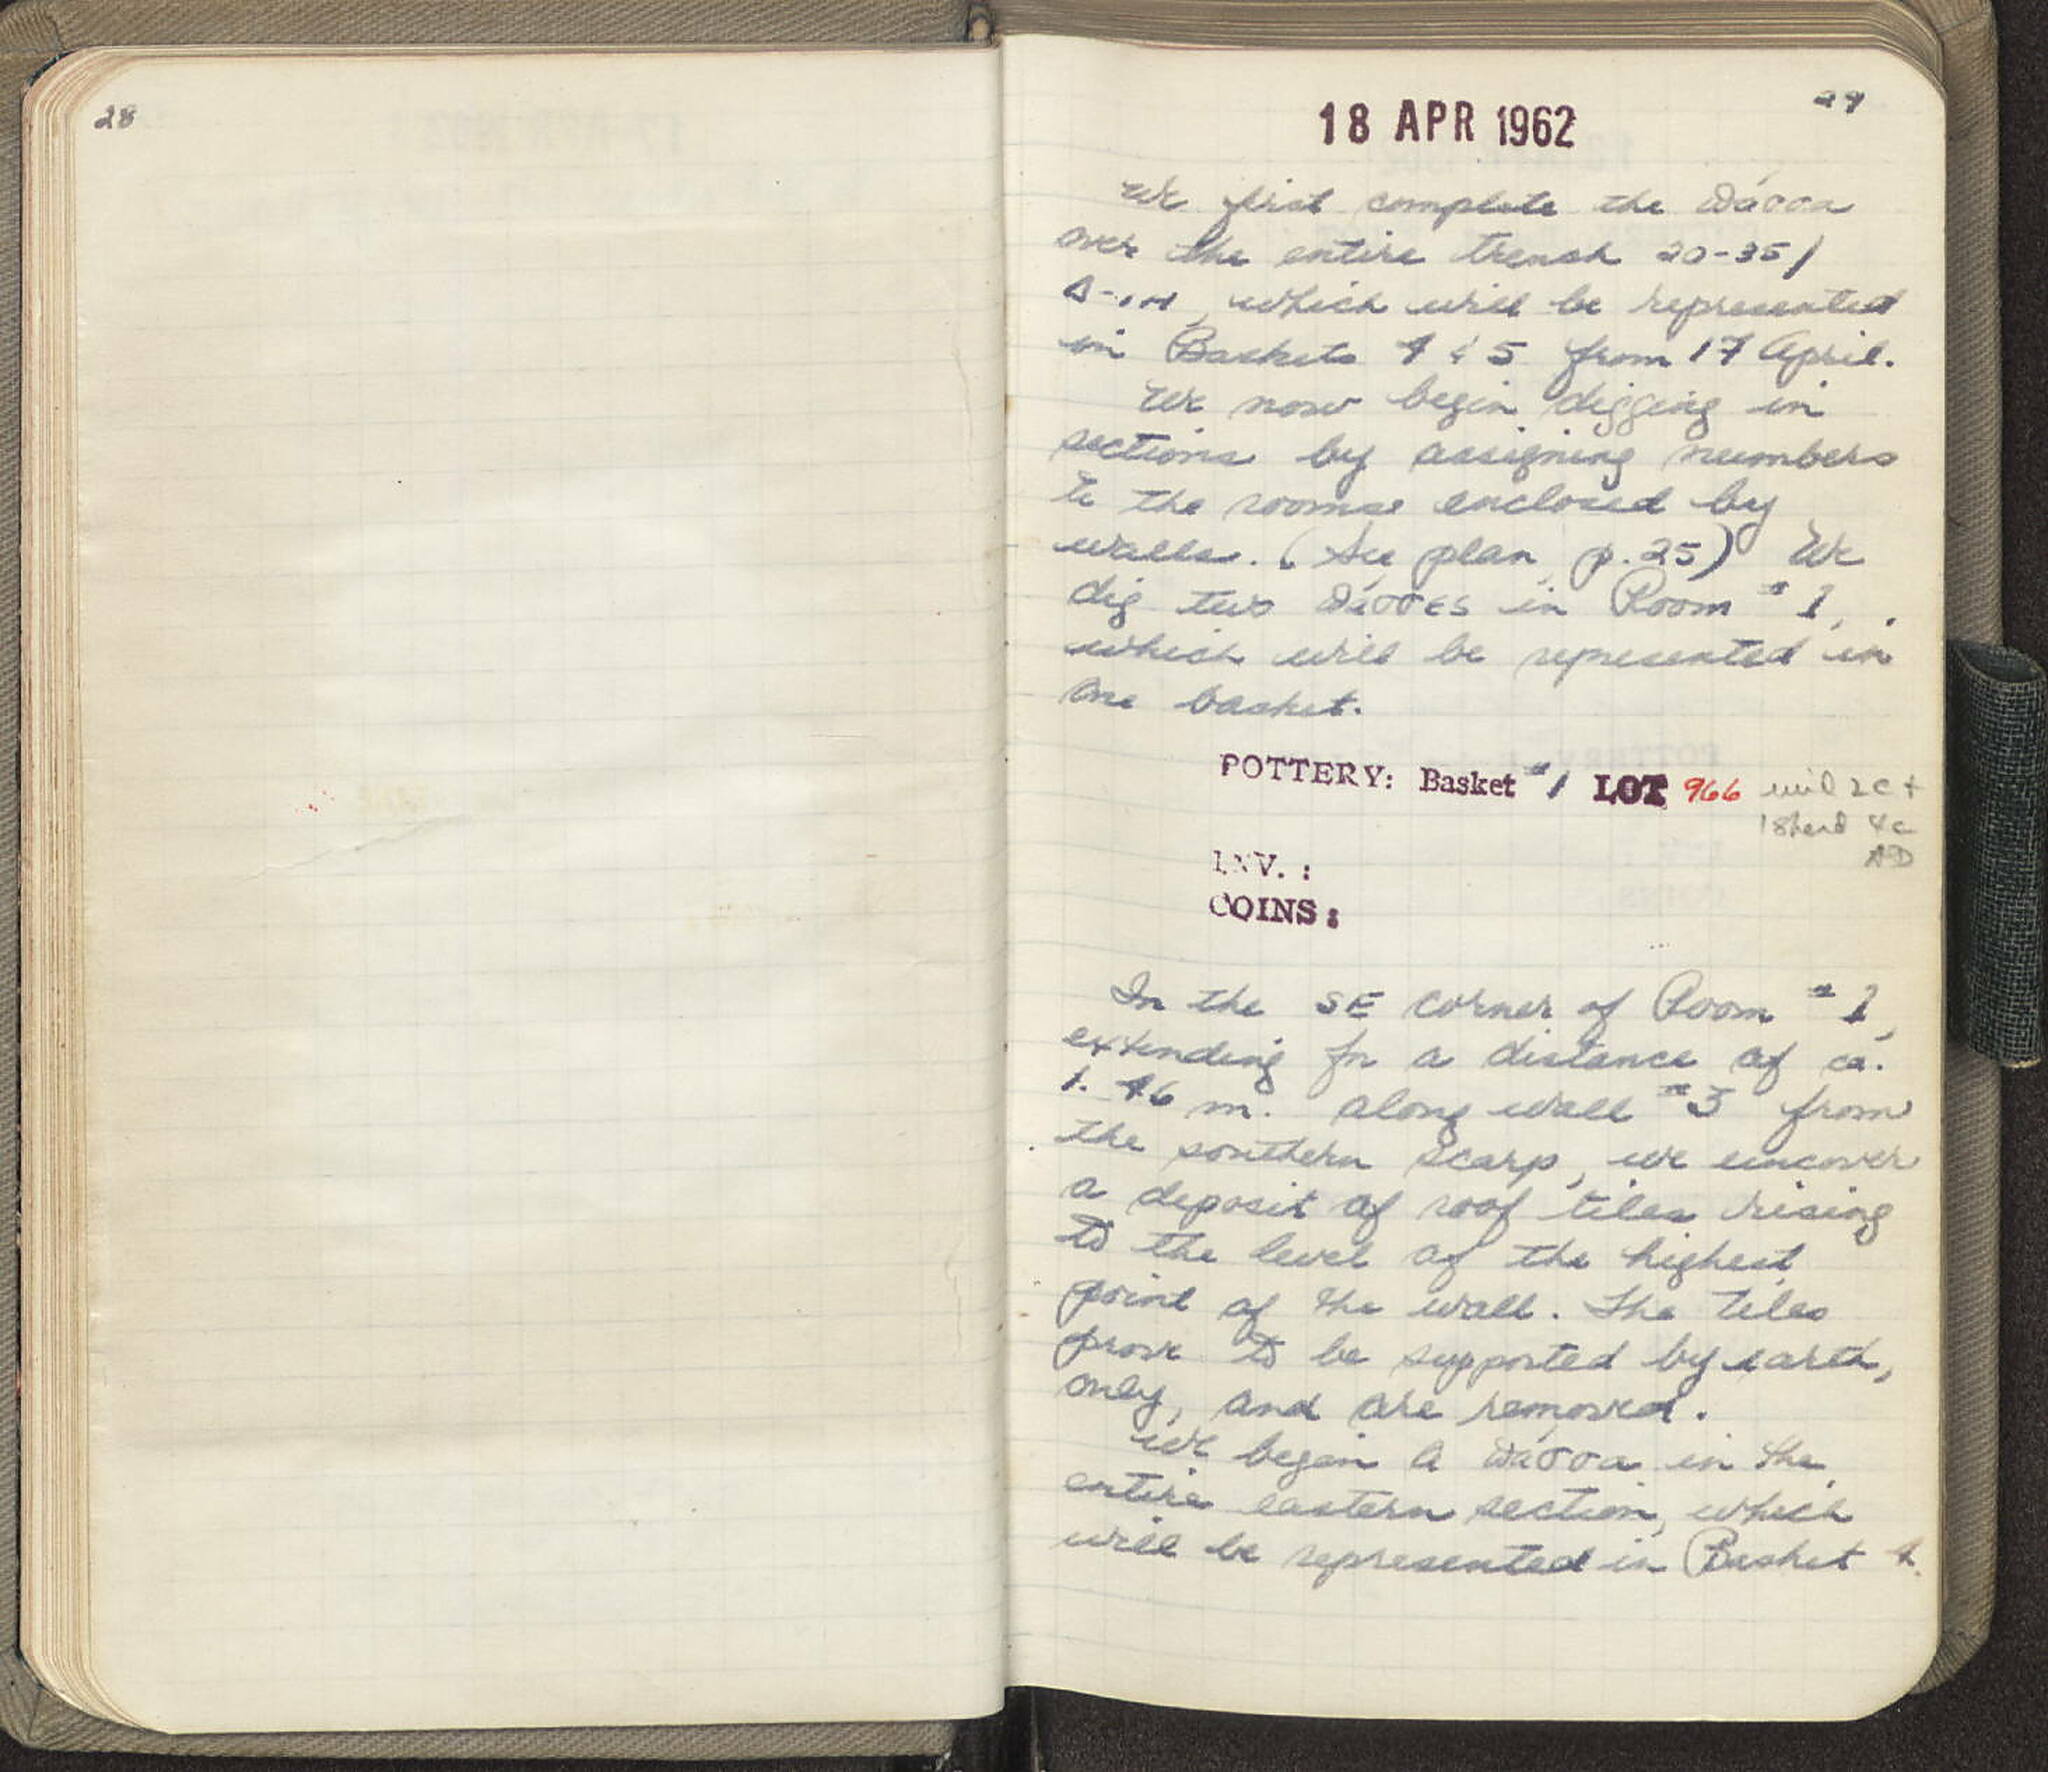 28
29
18 APR 1962
We first complete the πάσσα
over the entire trench 20-35/
which will be represented
in Baskets 4 & 5 from 17 April.
We now begin digging in
sections by assigning numbers
to the rooms enclosed by
walls. (See plan, p. 25) We
dig two πάσσες in Room #1,
which will be represented in
one basket.
POTTERY: Basket #1 LOT 966 mid 2c +
1 sherd 4c
AD
INV. :
COINS:
In the SE corner of Room #1,
extending for a distance of ca.
1.46 m. along wall #3 from
the southern scarp, we uncover
a deposit of roof tiles rising
to the level of the highest
point of the wall. The tiles
prove to be supported by earth,
only, and are removed.
We begin a πάσσα in the
entire eastern section, which
will be represented in Basket